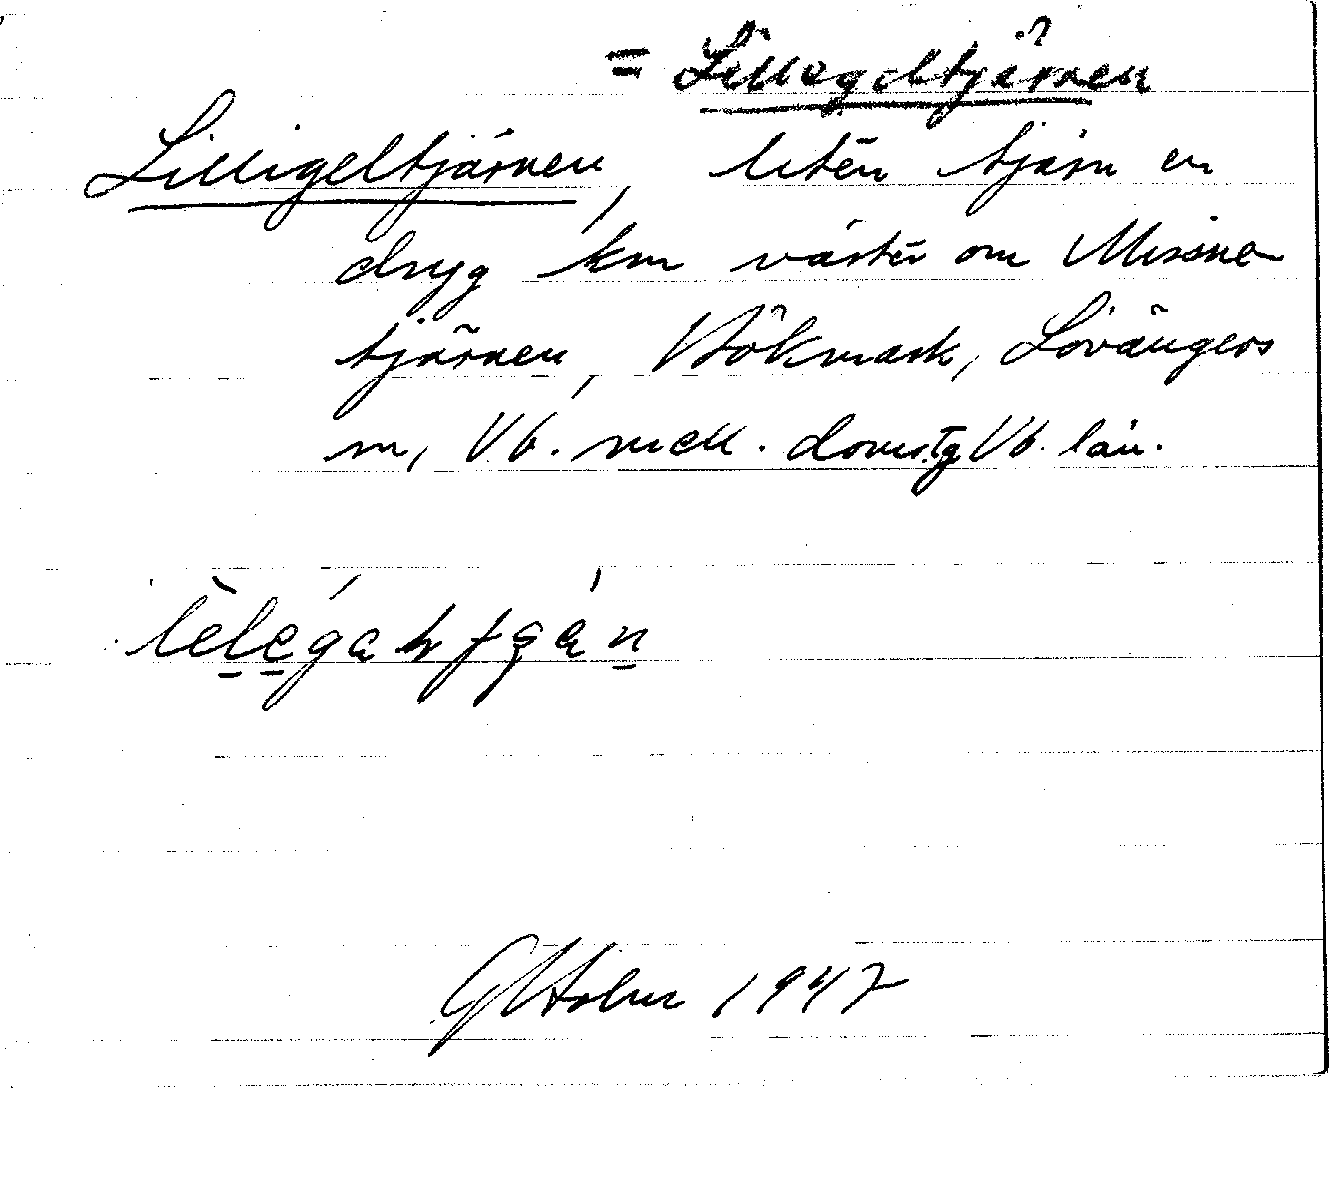 = Lillegeltjärnen
Lilligeltjärnen, liten tjärn en
dryg km väster om Missne-
tjärnen, Vökmark, Lövångers
sn, Vb. mell. doms.tg Vb. län.
G Holm 1947